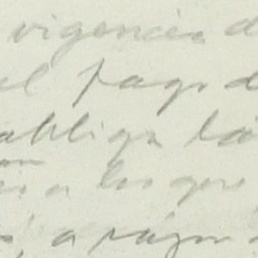 vigencia d
el pago d
obliga la
a los que
a razón